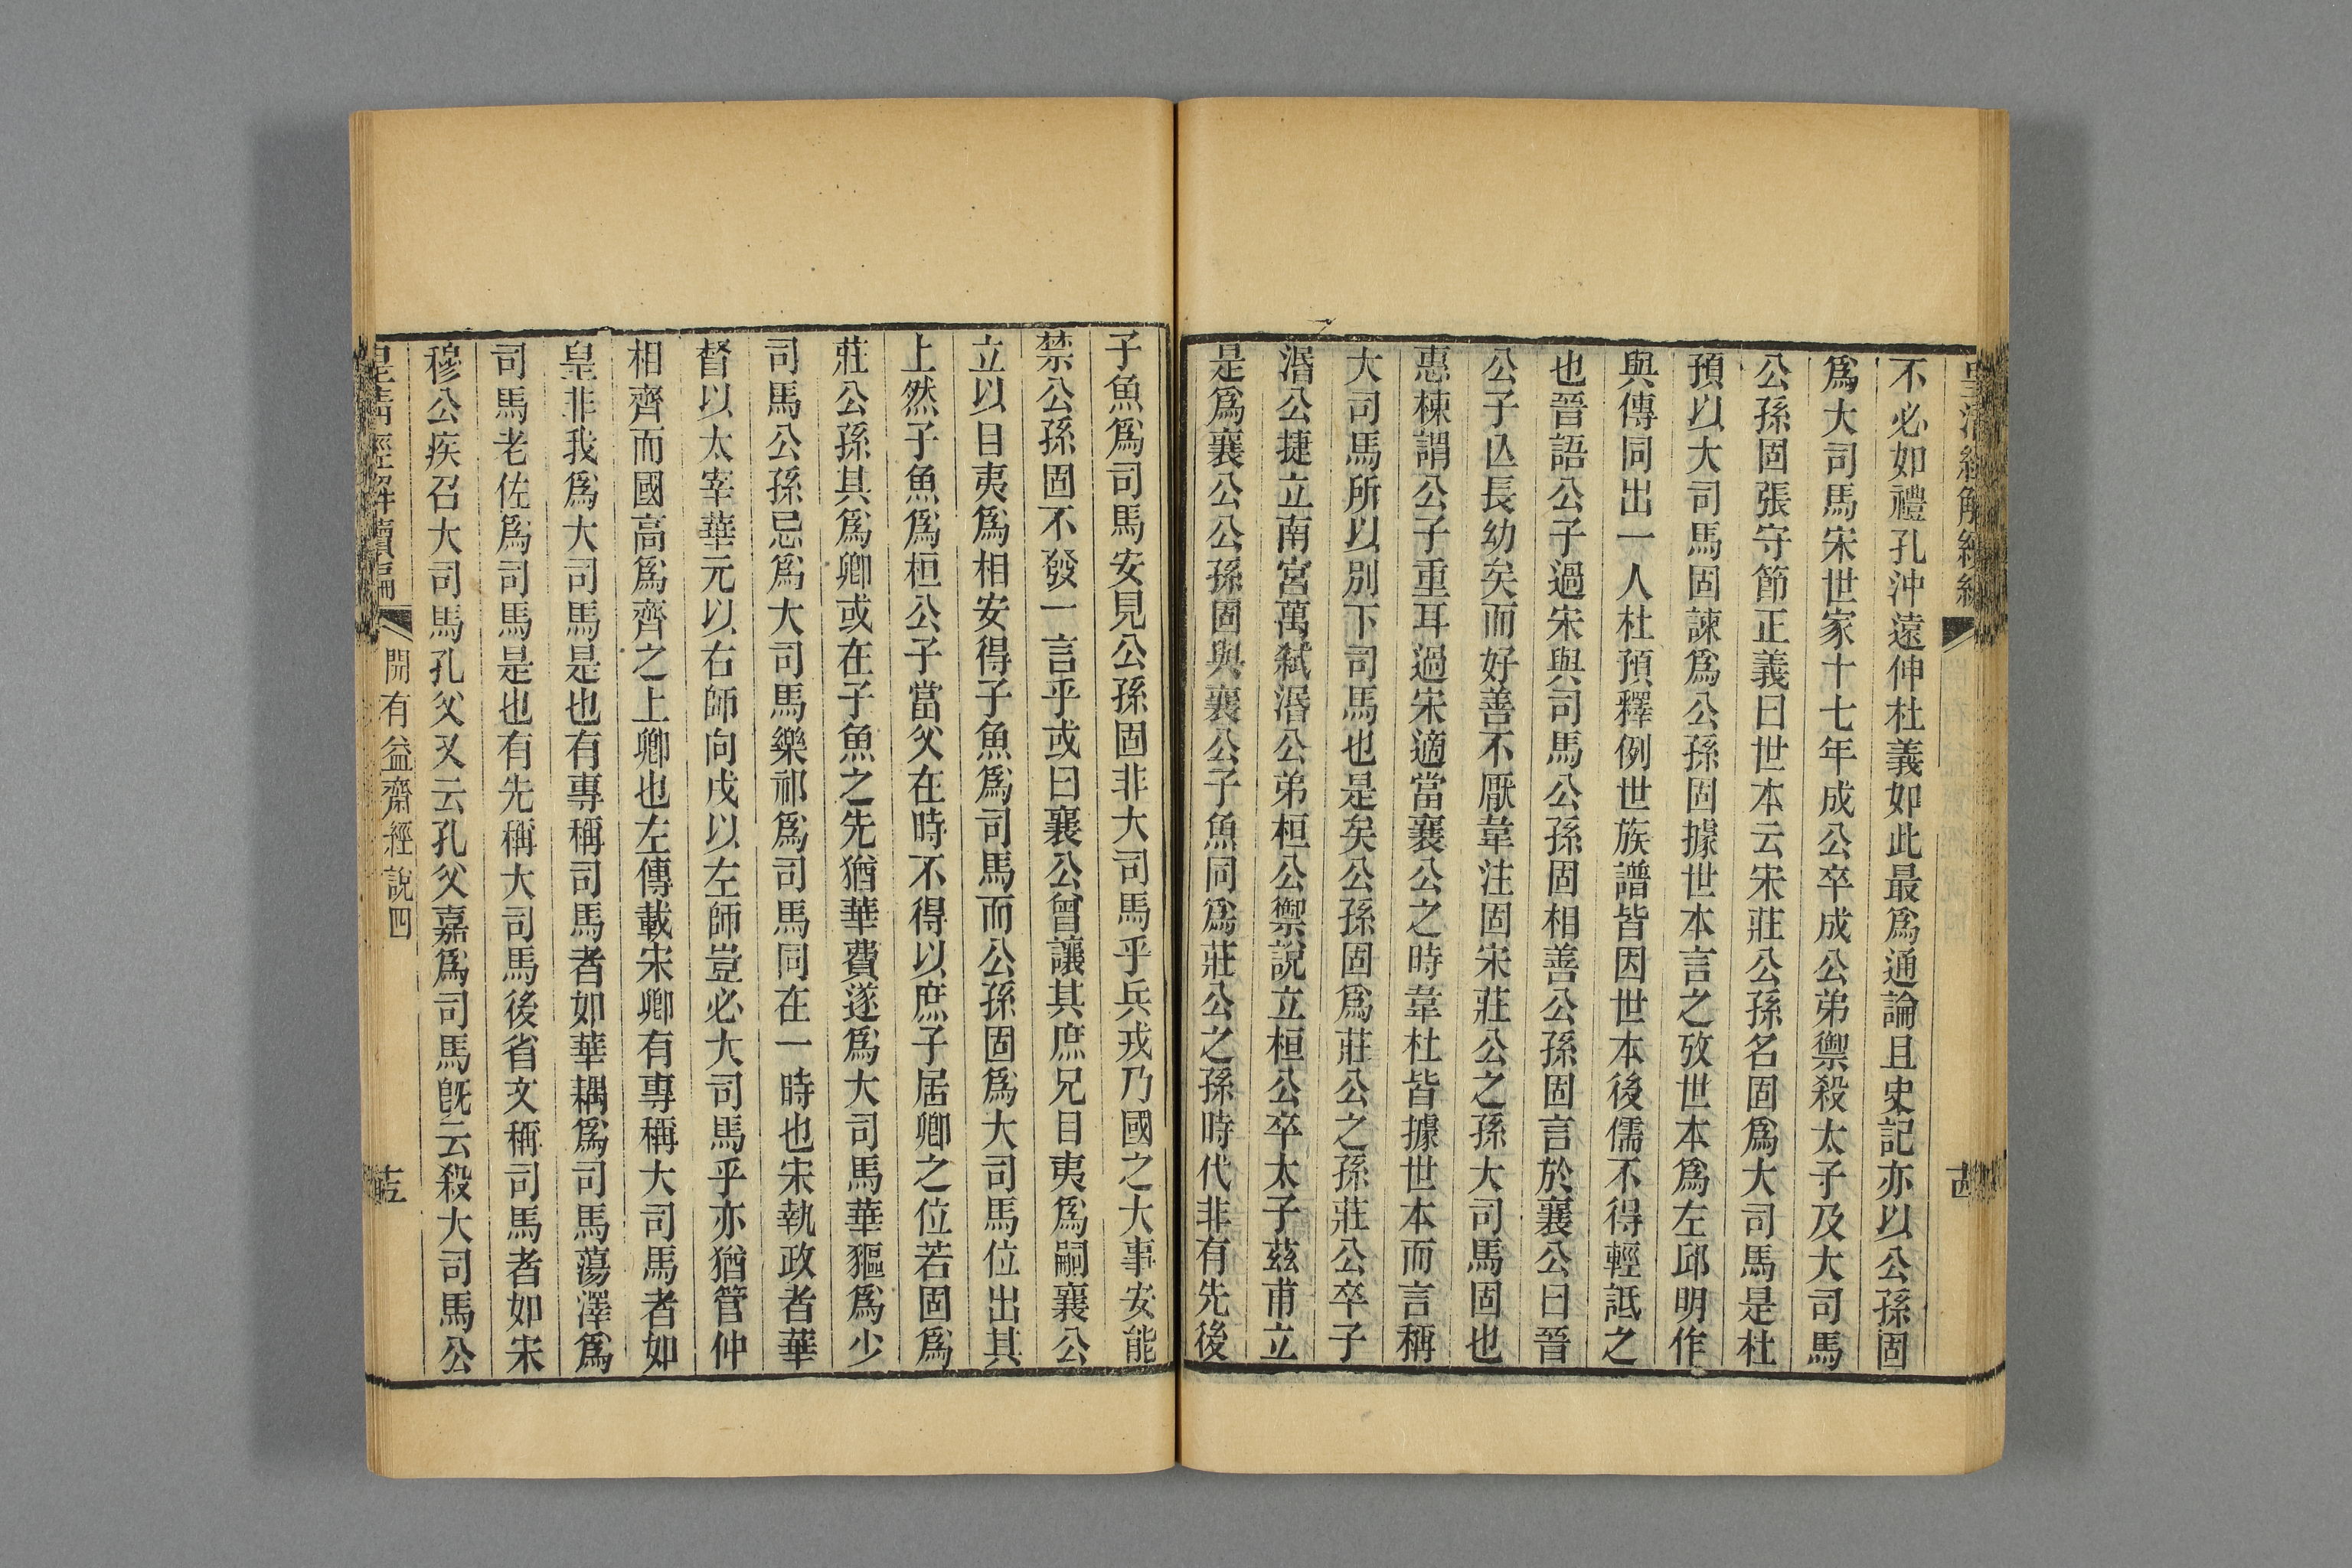 不必如禮孔沖遠伸杜義如此最爲通論且史記亦以公孫固
爲大司馬宋世家十七年成公卒成公弟禦殺太子及大司馬
公孫固張守節正義曰世本云宋莊公孫名固爲大司馬是杜
預以大司馬固諫爲公孫固據世本言之攷世本爲左邱明作
與傳同出一人杜預釋例世族譜皆因世本後儒不得輕詆之
也晉語公子過宋與司馬公孫固相善公孫固言於襄公曰晉
公子亾長幼矣而好善不厭韋注固宋莊公之孫大司馬固也
惠棟謂公子重耳過宋適當襄公之時韋杜皆據世本而言稱
大司馬所以別下司馬也是矣公孫固爲莊公之孫莊公卒子
湣公捷立南宮萬弑湣公弟桓公禦說立桓公卒太子茲甫立
是爲襄公公孫固與襄公子魚同爲莊公之孫時代非有先後
子魚爲司馬安見公孫固非大司馬乎兵戎乃國之大事安能
禁公孫固不發一言乎或曰襄公曾讓其庶兄目夷爲嗣襄公
立以目夷爲相安得子魚爲司馬而公孫固爲大司馬位出其
上然子魚爲桓公子當父在時不得以庶子居卿之位若固爲
莊公孫其爲卿或在子魚之先猶華費遂爲大司馬華貙爲少
司馬公孫忌爲大司馬樂祁爲司馬同在一時也宋執政者華
督以太宰華元以右師向戌以左師豈必大司馬乎亦猶管仲
相齊而國高爲齊之上卿也左傳載宋卿有專稱大司馬者如
皇非我爲大司馬是也有專稱司馬者如華耦爲司馬蕩澤爲
司馬老佐爲司馬是也有先稱大司馬後省文稱司馬者如宋
穆公疾召大司馬孔父又云孔父嘉爲司馬旣云殺大司馬公
皇清經解續編
開有益齋經說四